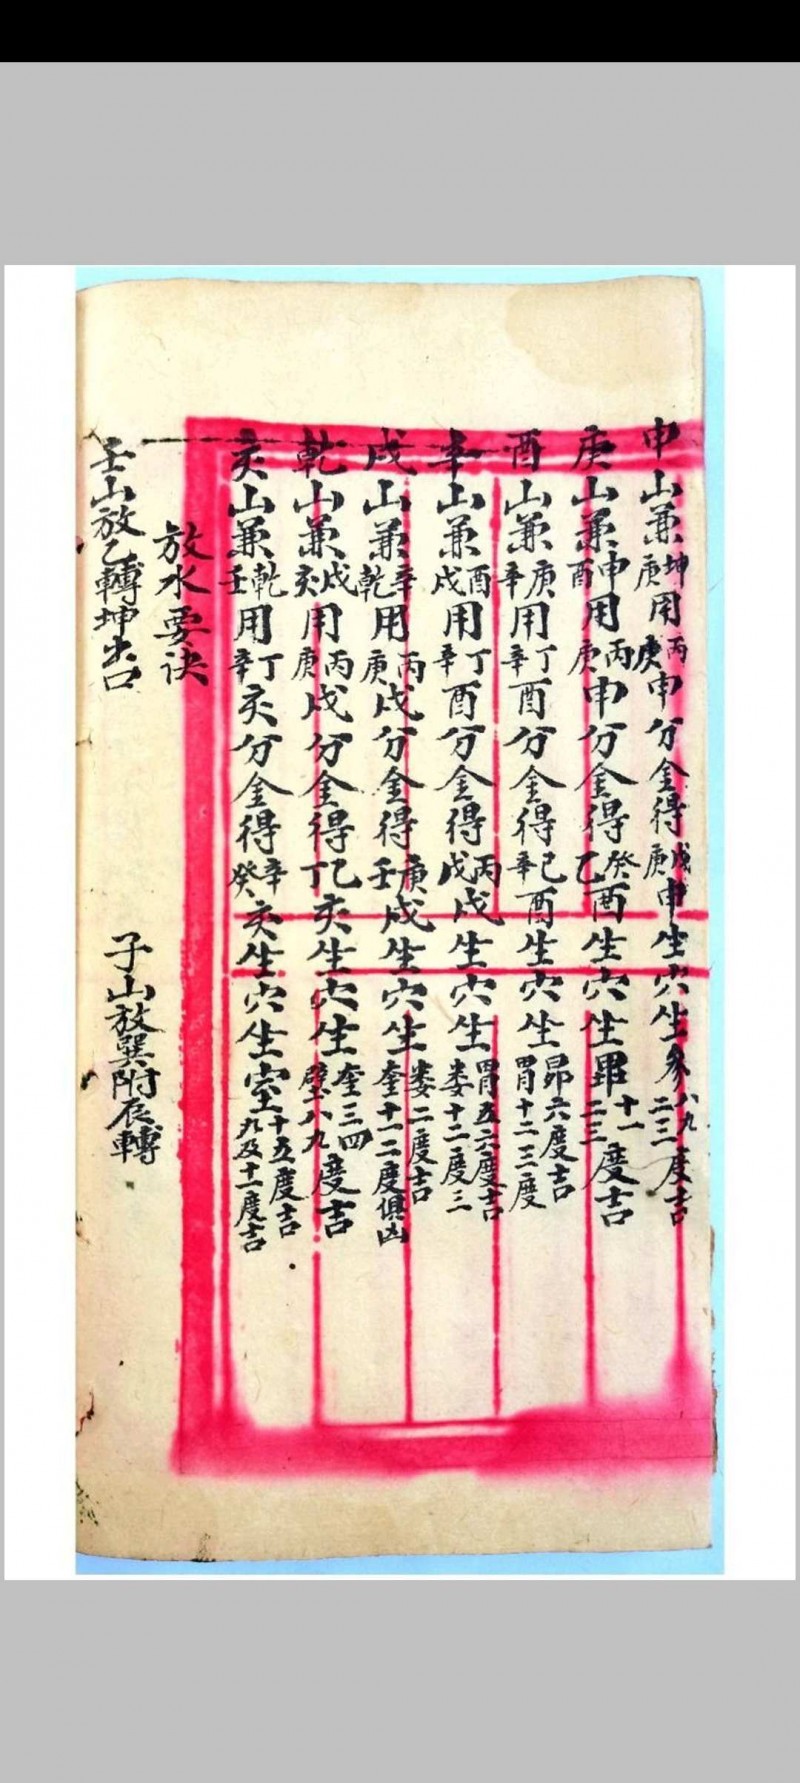 申山兼坤庚用丙庚申分金得戊庚申生穴生參八九二三度吉
庚山兼申酉用丙庚申分金得癸乙酉生穴生昴十一二三度吉
酉山兼庚辛用丁辛酉分金得己辛酉生穴生昴六度吉胃十二三度
辛山兼酉戌用丁辛酉分金得丙戊戌生穴生胃五六度吉婁十二度三
戌山兼辛乾用丙庚戌分金得庚壬戌生穴生婁二度吉奎十一二度俱凶
乾山兼戌亥用丙庚戌分金得乙丁亥生穴生奎三四壁八九度吉
亥山兼乾壬用丁辛亥分金得辛癸亥生穴生室十五度吉九及十一度吉
放水要诀
壬山放乙轉坤出口
子山放巽附辰轉